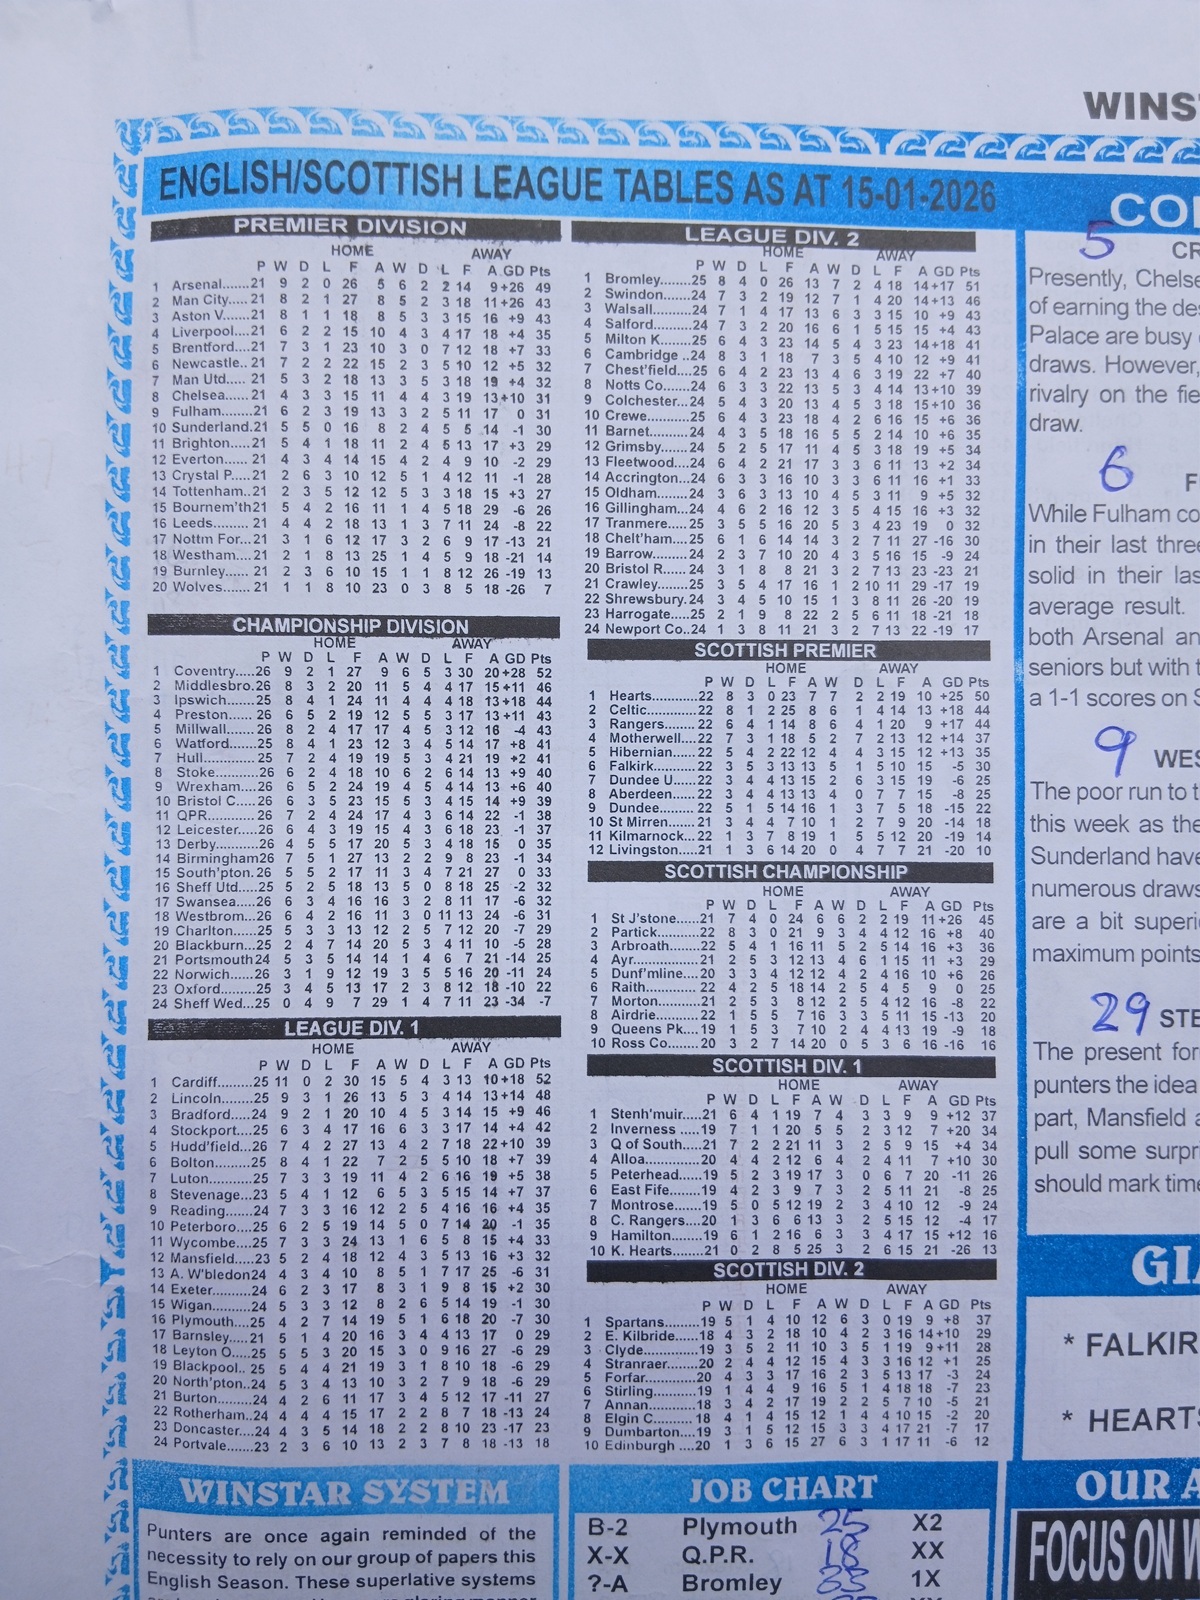 WINS
ENGLISH/SCOTTISH LEAGUE TABLES AS AT 15-01-2026
PREMIER DIVISION
HOME AWAY
P W D L F A W D L F A GD Pts
1 Arsenal......21 9 2 0 26 5 6 2 2 14 9 +26 49
2 Man City.....21 8 2 1 27 8 5 2 3 18 11 +26 43
3 Aston V......21 8 1 1 18 8 5 3 3 15 16 +9 43
4 Liverpool....21 6 2 2 15 10 4 3 4 17 18 +4 35
5 Brentford....21 7 3 1 23 10 3 0 7 12 18 +7 33
6 Newcastle..21 7 2 2 22 15 2 3 5 10 12 +5 32
7 Man Utd.....21 5 3 2 18 13 3 5 3 18 19 +4 32
8 Chelsea.....21 4 3 3 15 11 4 4 3 19 13 +10 31
9 Fulham......21 6 2 3 19 13 3 2 5 11 17 0 31
10 Sunderland.21 5 5 0 16 8 2 4 5 5 14 -1 30
11 Brighton.....21 5 4 1 18 11 2 4 5 13 17 +3 29
12 Everton......21 4 3 4 14 15 4 2 4 9 10 -2 29
13 Crystal P....21 2 6 3 10 12 5 1 4 12 11 -1 28
14 Tottenham..21 2 3 5 12 12 5 3 3 18 15 +3 27
15 Bournem'th21 5 4 2 16 11 1 4 5 18 29 -6 26
16 Leeds........21 4 4 2 18 13 1 3 7 11 24 -8 22
17 Nottm For...21 3 1 6 12 17 3 2 6 9 17 -13 21
18 Westham....21 2 1 8 13 25 1 4 5 9 18 -21 14
19 Burnley......21 2 3 6 10 15 1 1 8 12 26 -19 13
20 Wolves.......21 1 1 8 10 23 0 3 8 5 18 -26 7
CHAMPIONSHIP DIVISION
HOME AWAY
P W D L F A W D L F A GD Pts
1 Coventry.....26 9 2 1 27 9 6 5 3 30 20 +28 52
2 Middlesbro.26 8 3 2 20 11 5 4 4 17 15 +11 46
3 Ipswich......25 8 4 1 24 11 4 4 4 18 13 +18 44
4 Preston......26 6 5 2 19 12 5 5 3 17 13 +11 43
5 Millwall.......26 8 2 4 17 17 4 5 3 12 16 -4 43
6 Watford......25 8 4 1 23 12 3 4 5 14 17 +8 41
7 Hull............25 7 2 4 19 19 5 3 4 21 19 +2 41
8 Stoke.........26 6 2 4 18 10 6 2 6 14 13 +9 40
9 Wrexham....26 6 5 2 24 19 4 5 4 14 13 +6 40
10 Bristol C.....26 6 3 5 23 15 5 3 4 15 14 +9 39
11 QPR..........26 7 2 4 24 17 4 3 6 14 22 -1 38
12 Leicester....26 6 4 3 19 15 4 3 6 18 23 -1 37
13 Derby.........26 4 5 5 17 20 5 3 4 18 15 0 35
14 Birmingham26 7 5 1 27 13 2 2 9 8 23 -1 34
15 South'pton.26 5 5 2 17 11 3 4 7 21 27 0 33
16 Sheff Utd....25 5 2 5 18 13 5 0 8 18 25 -2 32
17 Swansea....26 6 3 4 16 16 3 2 8 11 17 -6 32
18 Westbrom...26 6 4 2 16 11 3 0 11 13 24 -6 31
19 Charlton.....25 5 3 3 13 12 2 5 7 12 20 -7 29
20 Blackburn...25 2 4 7 14 20 5 3 4 11 10 -5 28
21 Portsmouth24 5 3 5 14 14 1 4 6 7 21 -14 25
22 Norwich......26 3 1 9 12 19 3 5 5 16 20 -11 24
23 Oxford.......25 3 4 5 13 17 2 3 8 12 18 -10 22
24 Sheff Wed...25 0 4 9 7 29 1 4 7 11 23 -34 -7
LEAGUE DIV. 1
HOME AWAY
P W D L F A W D L F A GD Pts
1 Cardiff.........25 11 0 2 30 15 5 4 3 13 10 +18 52
2 Lincoln........25 9 3 1 26 13 5 3 4 14 13 +14 48
3 Bradford.....24 9 2 1 20 10 4 5 3 14 15 +9 46
4 Stockport....25 6 3 4 17 16 6 3 3 17 14 +4 42
5 Hudd'field...26 7 4 2 27 13 4 2 7 18 22 +10 39
6 Bolton........25 8 4 1 22 7 2 5 5 10 18 +7 39
7 Luton.........25 7 3 3 19 11 4 2 6 16 19 +5 38
8 Stevenage..23 5 4 1 12 6 5 3 5 15 14 +7 37
9 Reading......24 7 3 3 16 12 2 5 4 16 16 +4 35
10 Peterboro...25 6 2 5 19 14 5 0 7 14 20 -1 35
11 Wycombe...25 7 3 3 24 13 1 6 5 8 15 +4 33
12 Mansfield....23 5 2 4 18 12 4 3 5 13 16 +3 32
13 A. W'bledon24 4 3 4 10 8 5 1 7 17 25 -6 31
14 Exeter........24 6 2 3 17 8 3 1 9 8 15 +2 30
15 Wigan........24 5 3 3 12 8 2 6 5 14 19 -1 30
16 Plymouth....25 4 2 7 14 19 5 1 6 18 20 -7 30
17 Barnsley.....21 5 1 4 20 16 3 4 4 13 17 0 29
18 Leyton O.....25 5 5 3 20 15 3 0 9 16 27 -6 29
19 Blackpool...25 5 4 4 21 19 3 1 8 10 18 -6 29
20 North'pton..24 5 3 4 13 10 3 2 7 9 18 -6 29
21 Burton........24 4 2 6 11 17 3 4 5 12 17 -11 27
22 Rotherham..24 4 4 4 15 17 2 2 8 7 18 -13 24
23 Doncaster...24 4 3 5 14 18 2 2 8 10 23 -17 23
24 Portvale......23 2 3 6 10 13 2 3 7 8 18 -13 18
WINSTAR SYSTEM
Punters are once again reminded of the
necessity to rely on our group of papers this
English Season. These superlative systems
LEAGUE DIV. 2
HOME AWAY
P W D L F A W D L F A GD Pts
1 Bromley......25 8 4 0 26 13 7 2 4 18 14 +17 51
2 Swindon......24 7 3 2 19 12 7 1 4 20 14 +13 46
3 Walsall.......24 7 1 4 17 13 6 3 3 15 10 +9 43
4 Salford.......24 7 3 2 20 16 6 1 5 15 15 +4 43
5 Milton K......25 6 4 3 23 14 5 4 3 23 14 +18 41
6 Cambridge ..24 8 3 1 18 7 3 5 4 10 12 +9 41
7 Chest'field...25 6 4 2 23 13 4 6 3 19 22 +7 40
8 Notts Co.....24 6 3 3 22 13 5 3 4 14 13 +10 39
9 Colchester...24 5 4 3 20 13 4 5 3 18 15 +10 36
10 Crewe........25 6 4 3 23 18 4 2 6 16 15 +6 36
11 Barnet........24 4 3 5 18 16 5 5 2 14 10 +6 35
12 Grimsby......24 5 2 5 17 11 4 5 3 18 19 +5 34
13 Fleetwood...24 6 4 2 21 17 3 3 6 11 13 +2 34
14 Accrington...24 6 3 3 16 10 3 3 6 11 16 +1 33
15 Oldham.......24 3 6 3 13 10 4 5 3 11 9 +5 32
16 Gillingham...24 4 6 2 16 12 3 5 4 15 16 +3 32
17 Tranmere....25 3 5 5 16 20 5 3 4 23 19 0 32
18 Chelt'ham....25 6 1 6 14 14 3 2 7 11 27 -16 30
19 Barrow........24 2 3 7 10 20 4 3 5 16 15 -9 24
20 Bristol R......24 3 1 8 8 21 3 2 7 13 23 -23 21
21 Crawley......25 3 5 4 17 16 1 2 10 11 29 -17 19
22 Shrewsbury.24 3 4 5 10 15 1 3 8 11 26 -20 19
23 Harrogate....25 2 1 9 8 22 2 5 6 11 18 -21 18
24 Newport Co..24 1 3 8 11 21 3 2 7 13 22 -19 17
SCOTTISH PREMIER
HOME AWAY
P W D L F A W D L F A GD Pts
1 Hearts.........22 8 3 0 23 7 7 2 2 19 10 +25 50
2 Celtic..........22 8 1 2 25 8 6 1 4 14 13 +18 44
3 Rangers......22 6 4 1 14 8 6 4 1 20 9 +17 44
4 Motherwell...22 7 3 1 18 5 2 7 2 13 12 +14 37
5 Hibernian....22 5 4 2 22 12 4 4 3 15 12 +13 35
6 Falkirk........22 3 5 3 13 13 5 1 5 10 15 -5 30
7 Dundee U....22 3 4 4 13 15 2 6 3 15 19 -6 25
8 Aberdeen....22 3 4 4 13 13 4 0 7 7 15 -8 25
9 Dundee.......22 5 1 5 14 16 1 3 7 5 18 -15 22
10 St Mirren.....21 3 4 4 7 10 1 2 7 9 20 -14 18
11 Kilmarnock...22 1 3 7 8 19 1 5 5 12 20 -19 14
12 Livingston....21 1 3 6 14 20 0 4 7 7 21 -20 10
SCOTTISH CHAMPIONSHIP
HOME AWAY
P W D L F A W D L F A GD Pts
1 St J'stone.....21 7 4 0 24 6 6 2 2 19 11 +26 45
2 Partick........22 8 3 0 21 9 3 4 4 12 16 +8 40
3 Arbroath......22 5 4 1 16 11 5 2 5 14 16 +3 36
4 Ayr.............21 2 5 3 12 13 4 6 1 15 11 +3 29
5 Dunf'mline...20 3 3 4 12 12 4 2 4 16 10 +6 26
6 Raith..........22 4 2 5 18 14 2 5 4 5 9 0 25
7 Morton........21 2 5 3 8 12 2 5 4 12 16 -8 22
8 Airdrie........22 1 5 5 7 16 3 3 5 11 15 -13 20
9 Queens Pk...19 1 5 3 7 10 2 4 4 13 19 -9 18
10 Ross Co......20 3 2 7 14 20 0 5 3 6 16 -16 16
SCOTTISH DIV. 1
HOME AWAY
P W D L F A W D L F A GD Pts
1 Stenh'muir....21 6 4 1 19 7 4 3 3 9 9 +12 37
2 Inverness ....19 7 1 1 20 5 5 2 3 12 7 +20 34
3 Q of South...21 7 2 2 21 11 3 2 5 9 15 +4 34
4 Alloa..........20 4 4 2 12 6 4 2 4 11 7 +10 30
5 Peterhead....19 5 2 3 19 17 3 0 6 7 20 -11 26
6 East Fife......19 4 2 3 9 7 3 2 5 11 21 -8 25
7 Montrose.....19 5 0 5 12 19 2 3 4 10 12 -9 24
8 C. Rangers...20 1 3 6 6 13 3 2 5 15 12 -4 17
9 Hamilton......19 6 1 2 16 6 3 3 4 17 15 +12 16
10 K. Hearts.....21 0 2 8 5 25 3 2 6 15 21 -26 13
SCOTTISH DIV. 2
HOME AWAY
P W D L F A W D L F A GD Pts
1 Spartans......19 5 1 4 10 12 6 3 0 19 9 +8 37
2 E. Kilbride....18 4 3 2 18 10 4 2 3 16 14 +10 29
3 Clyde..........19 3 5 2 11 10 3 5 1 19 9 +11 28
4 Stranraer.....20 2 4 4 12 15 4 3 3 16 12 +1 25
5 Forfar.........20 4 3 3 17 16 2 3 5 13 17 -3 24
6 Stirling........19 1 4 4 9 16 5 1 4 18 18 -7 23
7 Annan.........18 3 4 2 17 19 2 2 5 7 10 -5 21
8 Elgin C........18 4 1 4 15 12 1 4 4 10 15 -2 20
9 Dumbarton...19 3 1 5 12 15 3 3 4 17 21 -7 17
10 Edinburgh ....20 1 3 6 15 27 6 3 1 17 11 -6 12
JOB CHART
B-2 Plymouth 25 X2
X-X Q.P.R. 18 XX
?-A Bromley 33 1X
COI
5 CR
Presently, Chelse
of earning the des
Palace are busy
draws. However,
rivalry on the fie
draw.
6 F
While Fulham co
in their last three
solid in their las
average result.
both Arsenal an
seniors but with t
a 1-1 scores on S
9 WES
The poor run to t
this week as the
Sunderland have
numerous draws
are a bit superi
maximum points
29 STE
The present for
punters the idea
part, Mansfield a
pull some surpri
should mark time
GIA
* FALKIR
* HEARTS
OUR A
FOCUS ON W